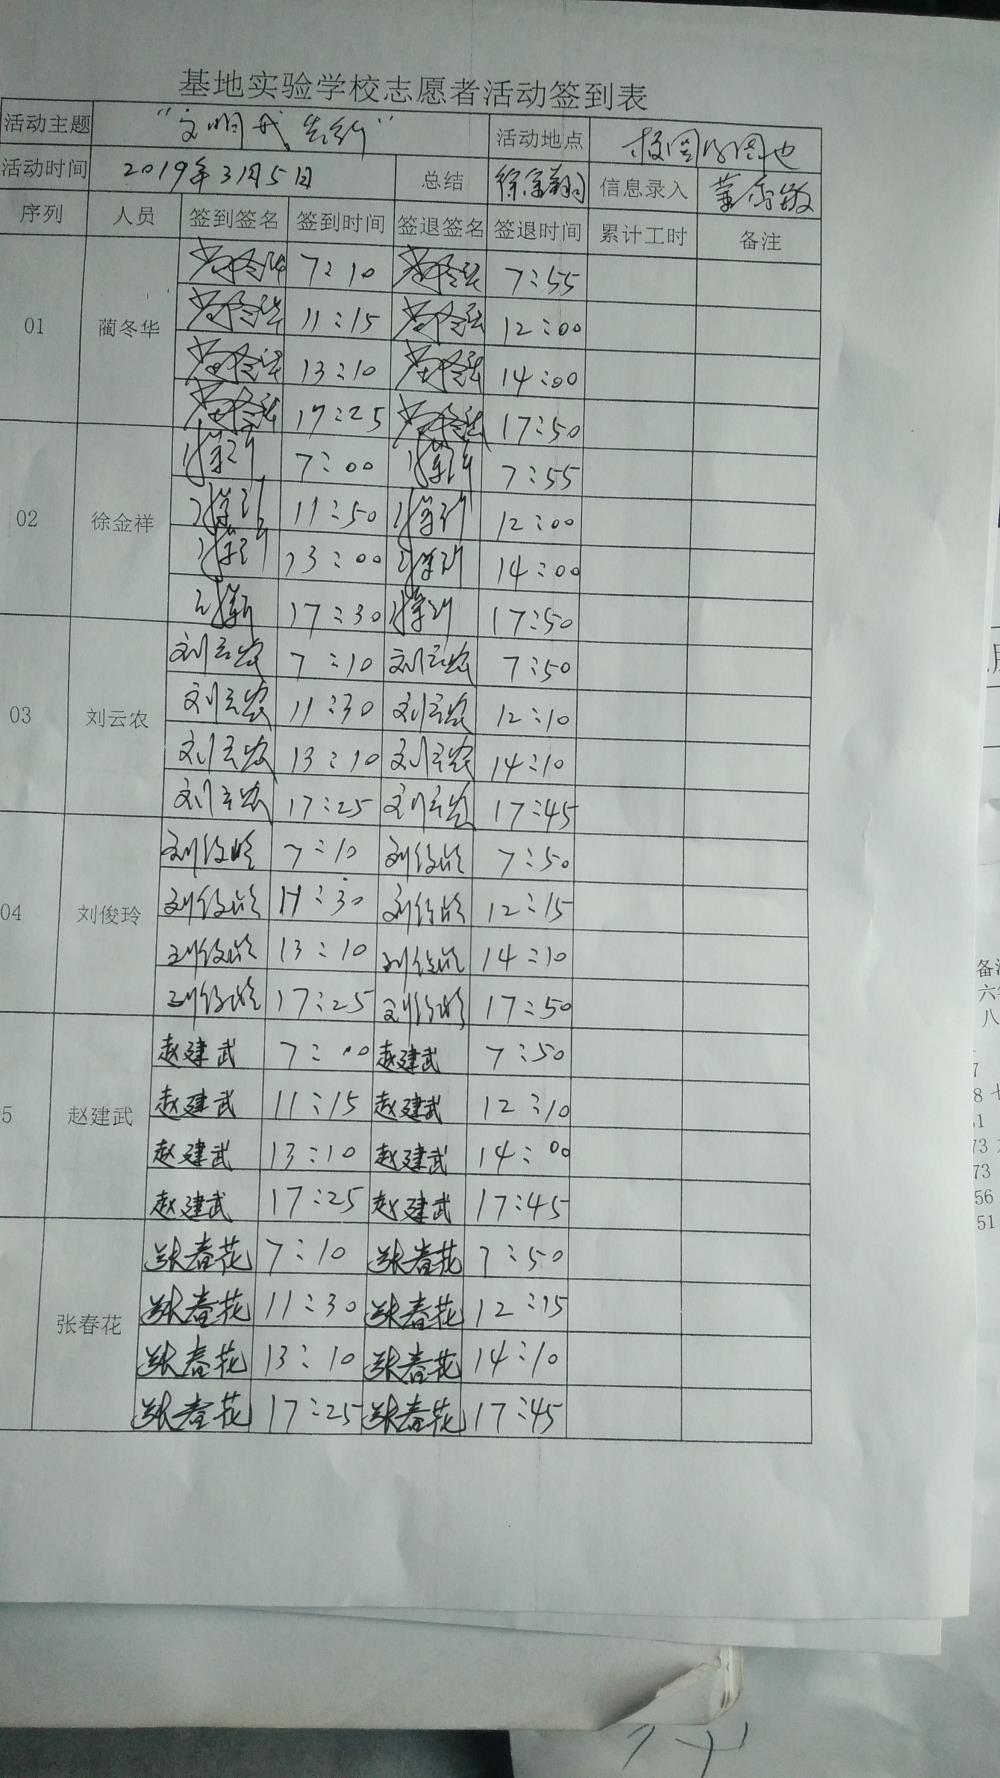 基地实验学校志愿者活动签到表
活动主题 “文明我先行” 活动地点
活动时间 2019年3月5日 总结 信息录入
序列 人员 签到签名 签到时间 签退签名 签退时间 累计工时 备注
7:10 7:55
01 蔺冬华 11:15 12:00
13:10 14:00
17:25 17:50
7:00 7:55
02 徐金祥 11:50 12:00
13:00 14:00
17:30 17:50
刘云农 7:10 刘云农 7:50
03 刘云农 刘云农 11:30 刘云农 12:10
刘云农 13:10 刘云农 14:10
刘云农 17:25 刘云农 17:45
刘俊玲 7:10 刘俊玲 7:50
04 刘俊玲 刘俊玲 11:30 刘俊玲 12:15
刘俊玲 13:10 刘俊玲 14:10
刘俊玲 17:25 刘俊玲 17:50
赵建武 7:00 赵建武 7:50
5 赵建武 赵建武 11:15 赵建武 12:10
赵建武 13:10 赵建武 14:00
赵建武 17:25 赵建武 17:45
张春花 7:10 张春花 7:50
张春花 张春花 11:30 张春花 12:15
张春花 13:10 张春花 14:10
张春花 17:25 张春花 17:45
备
六
八
7
8
73
73
56
51